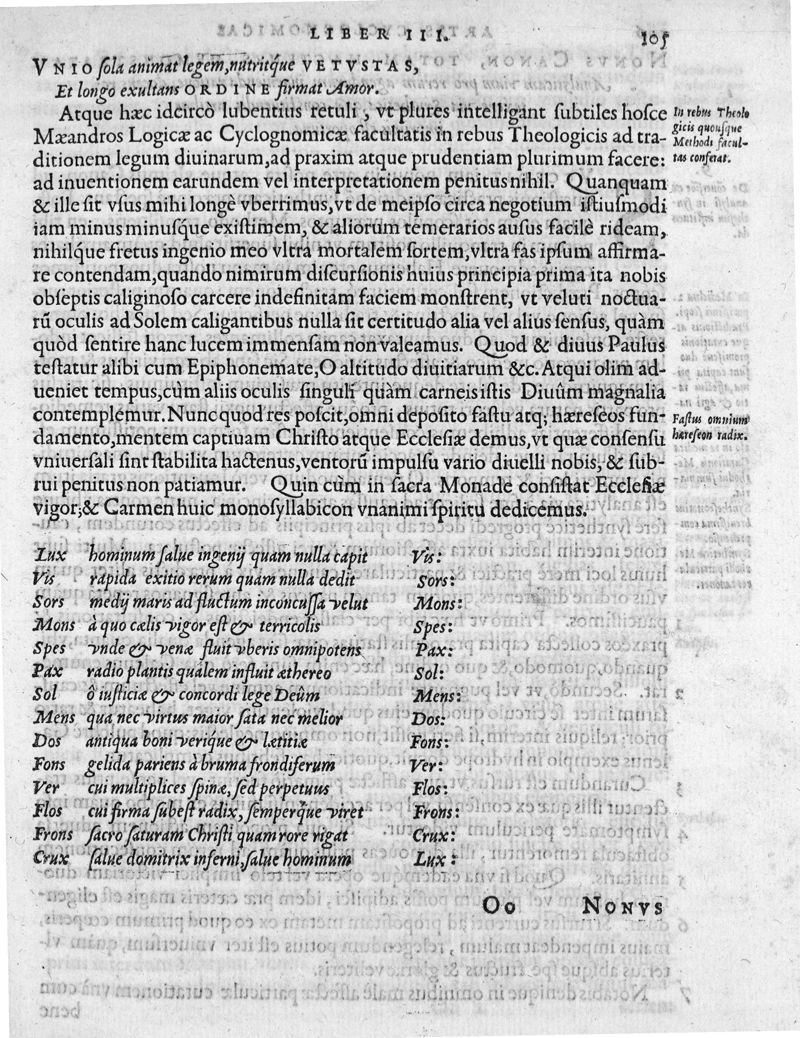 LIBER III. 105
VNIO sola animat legem, nutritq́ue VETVSTAS,
Et longo exultans ORDINE firmat Amor.
Atque hæc idcircò lubentius retuli, vt plures intelligant subtiles hosce
Mæandros Logicæ ac Cyclognomicæ facultatis in rebus Theologicis ad tra-
ditionem legum diuinarum, ad praxim atque prudentiam plurimum facere:
ad inuentionem earundem vel interpretationem penitus nihil. Quanquam
& ille sit vsus mihi longè vberrimus, vt de meipso circa negotium istiusmodi
iam minus minusq́ue existimem, & aliorum temerarios ausus facilè rideam,
nihilq́ue fretus ingenio meo vltra mortalem sortem, vltra fas ipsum affirma-
re contendam, quando nimirum discursionis huius principia prima ita nobis
obseptis caliginoso carcere indefinitam faciem monstrent, vt veluti noctua-
rũ oculis ad Solem caligantibus nulla sit certitudo alia vel alius sensus, quàm
quòd sentire hanc lucem immensam non valeamus. Quod & diuus Paulus
testatur alibi cum Epiphonemate, O altitudo diuitiarum &c. Atqui olim ad-
ueniet tempus, cùm aliis oculis singuli quàm carneis istis Diuûm magnalia
contemplemur. Nunc quod res poscit, omni deposito fastu atq; hæreseos fun-
damento, mentem captiuam Christo atque Ecclesiæ demus, vt quæ consensu
vniuersali sint stabilita hactenus, ventorũ impulsu vario diuelli nobis, & sub-
rui penitus non patiamur. Quin cùm in sacra Monade consistat Ecclesiæ
vigor; & Carmen huic monosyllabicon vnanimi spiritu dedicemus.
In rebus Theolo
gicis quousque
Methodi facul-
tas conferat.
Fastus omnium
hæreseon radix.
Lux hominum salue ingenij quam nulla capit Vis:
Vis rapida exitio rerum quam nulla dedit Sors:
Sors medij maris ad fluctum inconcussa velut Mons:
Mons à quo cælis vigor est & terricolis Spes:
Spes vnde & venæ fluit vberis omnipotens Pax:
Pax radio plantis qualem influit æthereo Sol:
Sol ô iusticiæ & concordi lege Deûm Mens:
Mens qua nec virtus maior sata nec melior Dos:
Dos antiqua boni veriq́ue & lætitiæ Fons:
Fons gelida pariens à bruma frondiferum Ver:
Ver cui multiplices spinæ, sed perpetuus Flos:
Flos cui firma subest radix, semperq́ue viret Frons:
Frons sacro saturam Christi quam rore rigat Crux:
Crux salue domitrix inferni, salue hominum Lux:
Oo NONVS